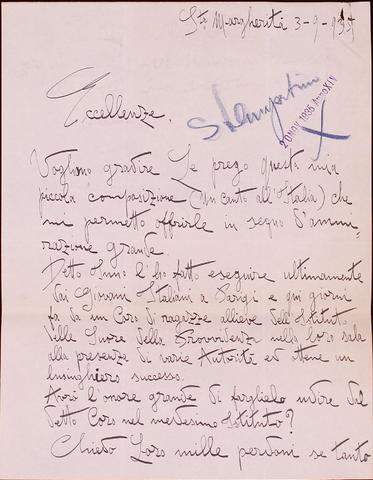 Sta Margherita 3-9-935
Eccellenze,
20 NOV. 1935 Anno XIV
X
Vogliano gradire Le prego questa mia
piccola composizione (un canto all'Italia) che
mi permetto offrirle in segno d'ammi-
razione grande.
Detto Inno l'ho fatto eseguire ultimamente
dai Giovani Italiani a Parigi e qui giorni
fa da un Coro di ragazze allieve dell'Istituto
delle Suore della Provvidenza nella loro sala
alla presenza di varie Autorità ed ottene un
lusinghiero successo.
Avrò l'onore grande di farglielo udire dal
detto Coro nel medesimo Istituto?
Chiedo Loro mille perdoni se tanto